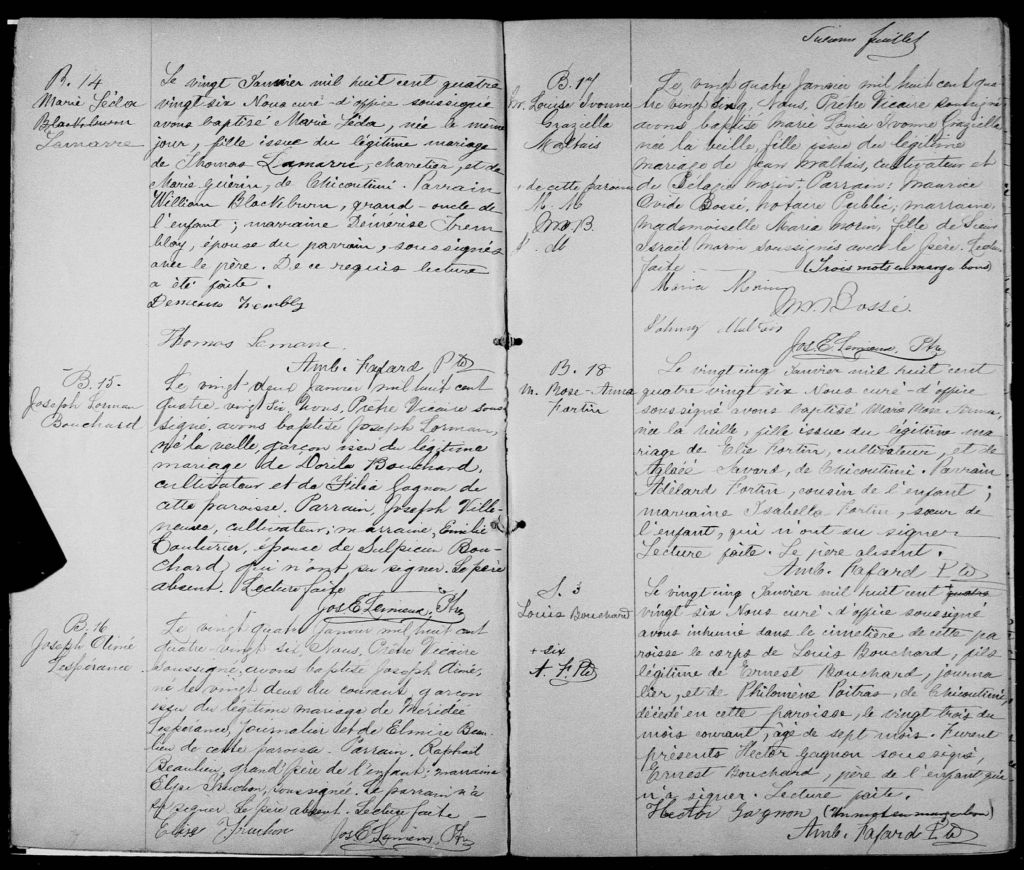 B. 14
Marie Léda
Blackburn
Lamarre
Le vingt Janvier mil huit cent quatre
vingt six Nous curé d'office soussigné
avons baptisé Marie Léda, née le même
jour, fille issue du légitime mariage
de Thomas Lamarre, charretier, et de
Marie Guérin, de Chicoutimi. Parrain
William Blackburn, grand-oncle de
l'enfant; marraine Démérise Trem
blay, épouse du parrain, soussignés
avec le père. De ce requis lecture
a été faite.
Demerise Trembly
Thomas Lemare
Amb. Fafard Ptre
B. 15.
Joseph Lorman
Bouchard
Le vingt-deux Janvier mil huit cent
quatre-vingt six, Nous, Prêtre Vicaire sous
signé, avons baptisé Joseph Lorman,
né la veille, garçon issu du légitime
mariage de Dorila Bouchard,
cultivateur et de Filia Gagnon de
cette paroisse. Parrain, Joseph Ville
neuve, cultivateur; marraine, Emilie
Couturier, épouse de Sulpicien Bou-
chard, qui n'ont su signer. Le père
absent. Lecture faite
Jos E Lemieux, Ptre
B. 16
Joseph Aimé
Lespérance
Le vingt quatre Janvier mil huit cent
quatre-vingt six, Nous, Prêtre Vicaire
soussigné, avons baptisé Joseph Aimé,
né le vingt deux du courant, garçon
issu du légitime mariage de Méridée
Lespérance, Journalier et de Elmire Beau-
lieu de cette paroisse. Parrain, Raphael
Beaulieu, grand'père de l'enfant; marraine
Elyse Truchon, soussignée. Le parrain n'a
su signer. Le père absent. Lecture faite —
Elise Truchon
Jos E Lemieux, Ptre
Sixième feuillet
B. 17
M. Louise Ivonne
Graziella
Maltais
+ de cette paroisse
M. M
M. O. B.
Le vingt quatre Janvier mil huit cent qua
tre vingt six, Nous, Prêtre Vicaire soussigné
avons baptisé Marie Louise Ivonne Graziella
née la veille, fille issue du légitime
mariage de Jean Maltais, cultivateur et
de Pélagie Morin + Parrain: Maurice
Ovide Bossé, Notaire Public, marraine,
Mademoiselle Maria Morin, fille de Sieur
Israël Morin soussignés avec le père. Lecture
faite — (Trois mots en marge bons)
Maria Morin
M. O. Bossé.
Johnny Maltais
Jos. E. Lemieux, Ptre
B. 18
M. Rose-Anna
Fortin
Le vingt cinq Janvier mil huit cent
quatre vingt six Nous curé d'office
soussigné avons baptisé Marie Rose Anna,
née la veille, fille issue du légitime ma
riage de Elie Fortin, cultivateur, et de
Aglaée Savard, de Chicoutimi. Parrain
Adélard Fortin, cousin de l'enfant;
marraine Isabella Fortin, sœur de
l'enfant, qui n'ont su signer
Lecture faite. Le père absent.
Amb. Fafard Ptre
S. 3
Louis Bouchard
+ six
A. F. Ptre
Le vingt cinq Janvier mil huit cent quatre
vingt six Nous curé d'office soussigné
avons inhumé dans le cimetière de cette pa
roisse le corps de Louis Bouchard, fils
légitime de Ernest Bouchard, journa
lier, et de Philomène Poitras, de Chicoutimi,
décédé en cette paroisse, le vingt trois du
mois courant, âgé de sept mois. Furent
présents Hector Gagnon soussigné,
Ernest Bouchard, père de l'enfant qui
n'a signer. Lecture faite.
Hector Gagnon (Un mot en marge bon)
Amb. Fafard Ptre